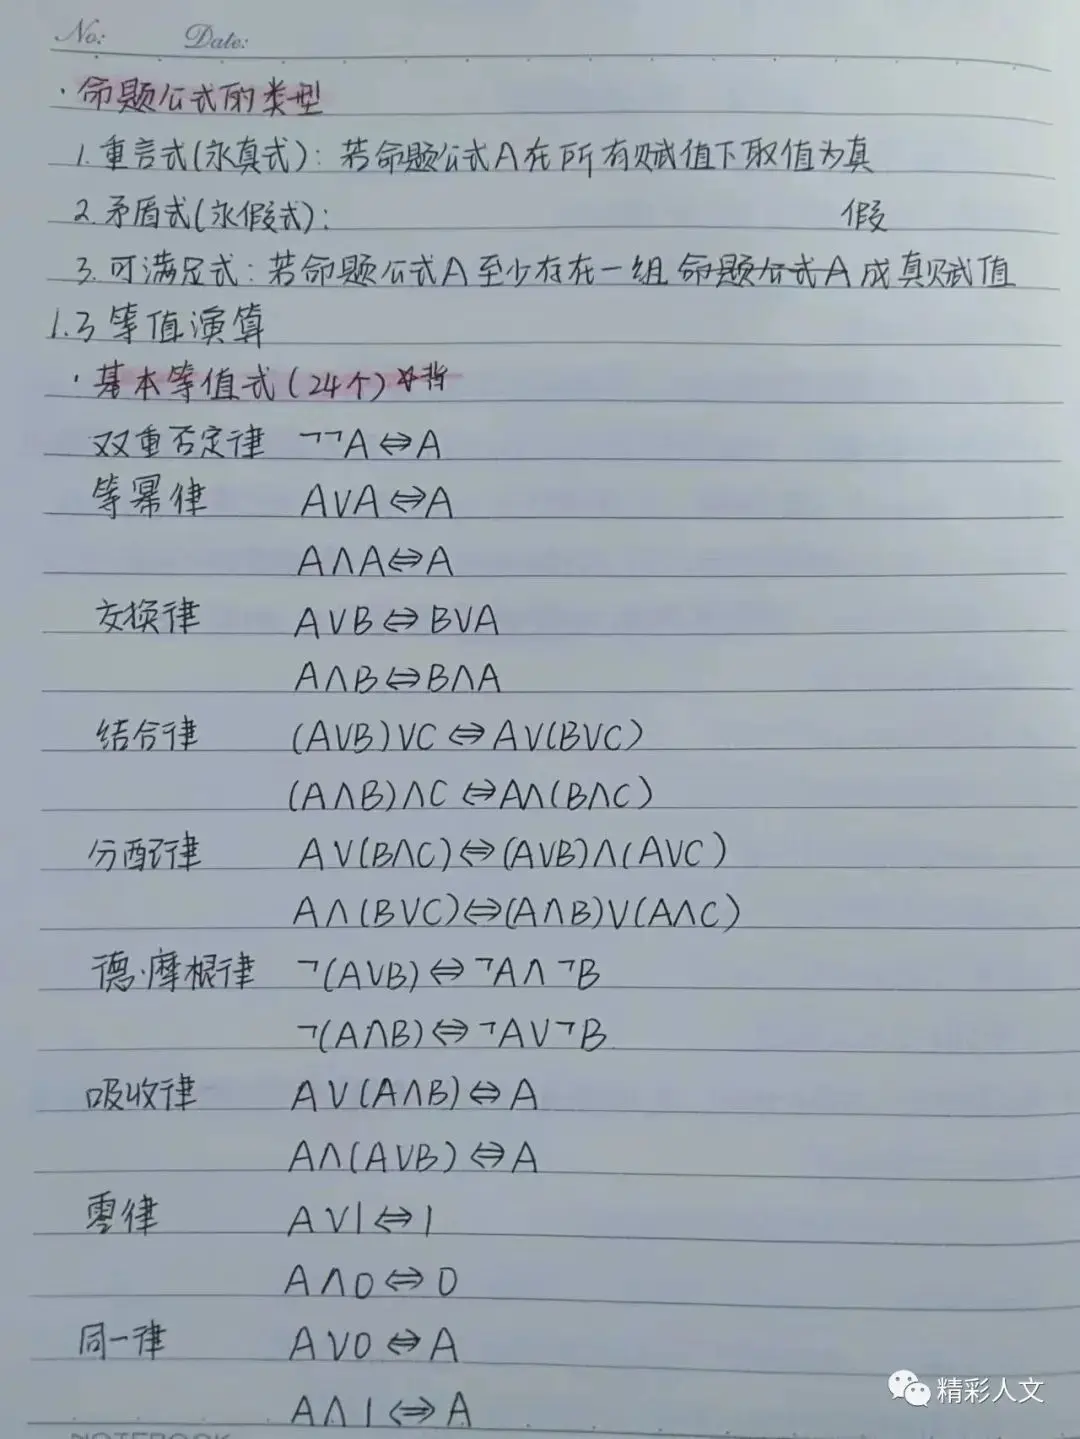 No: Date:
·命题公式的类型
1.重言式(永真式):若命题公式A在所有赋值下取值为真
2.矛盾式(永假式): 假
3.可满足式:若命题公式A至少存在一组命题公式A成真赋值
1.3等值演算
·基本等值式(24个)
双重否定律 ¬¬A⇔A
等幂律 A∨A⇔A
A∧A⇔A
交换律 A∨B⇔B∨A
A∧B⇔B∧A
结合律 (A∨B)∨C⇔A∨(B∨C)
(A∧B)∧C⇔A∧(B∧C)
分配律 A∨(B∧C)⇔(A∨B)∧(A∨C)
A∧(B∨C)⇔(A∧B)∨(A∧C)
德·摩根律 ¬(A∨B)⇔¬A∧¬B
¬(A∧B)⇔¬A∨¬B
吸收律 A∨(A∧B)⇔A
A∧(A∨B)⇔A
零律 A∨1⇔1
A∧0⇔0
同一律 A∨0⇔A
A∧1⇔A
精彩人文
NOTEBOOK